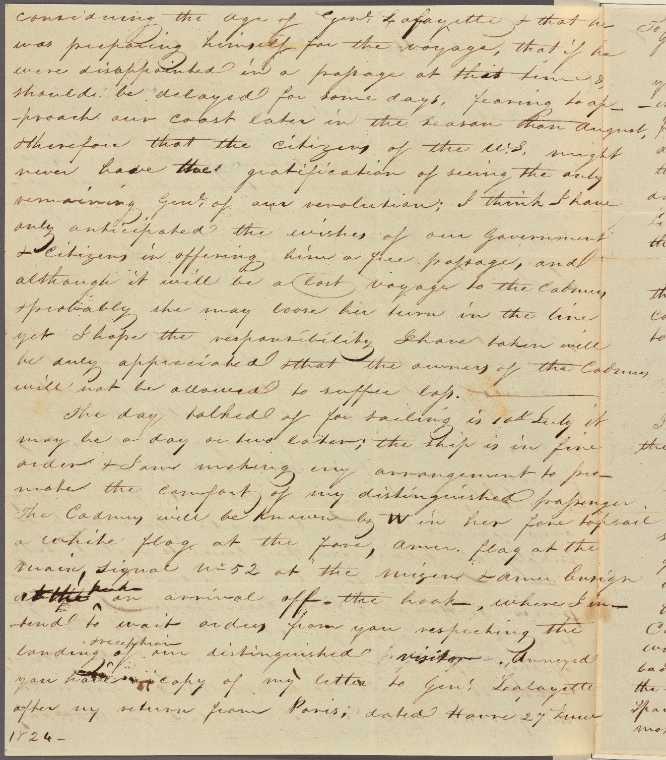 considering the age of Genl. Lafayette & that he
was preparing himself for the voyage, that if he
were disappointed in a passage at this time &
should be delayed for some days, fearing to ap-
-proach our coast later in the season than August,
& therefore that the Citizens of the U.S. might
never have the gratification of seeing the only
remaining Genl. of our revolution; I think I have
only anticipated the wishes of our Government
& Citizens in offering him a free passage, and
although it will be a lost voyage to the Cadmus
& probably she may loose her turn in the line
yet I hope the responsibility I have taken will
be duly appreciated & that the owners of the Cadmus
will not be allowed to suffer loss.
The day talked of for sailing is 10th July it
may be a day or two later; the ship is in fine
order & I am making my arrangement to pro-
mote the comfort of my distinguished passenger.
The Cadmus will be known by W in her fore topsail
a white flag at the fore, Amer. flag at the
main, signal No. 52 at the mizen & Amer Ensign
at the peak on arrival off the hook, where I in-
-tend to wait orders from you respecting the
landing & reception of our distinguished visitor. Annexed
you have copy of my letter to Genl. Lafayette
after my return from Paris; dated Havre 27 June
1824-